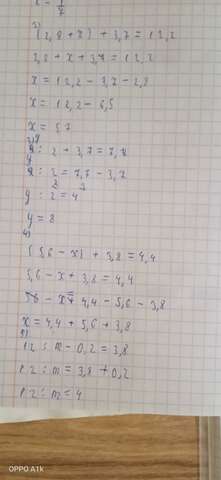 x = 1/7
(2,8 + x) + 3,7 = 12,2
2,8 + x + 3,7 = 12,2
x = 12,2 - 3,7 - 2,8
x = 12,2 - 6,5
x = 5,7
y : 2 + 3,7 = 7,7
y : 2 = 7,7 - 3,7
y : 2 = 4
y = 8
4)
(5,6 - x) + 3,8 = 4,4
5,6 - x + 3,8 = 4,4
- x = 4,4 - 5,6 - 3,8
x = 4,4 + 5,6 + 3,8
12 : m - 0,2 = 3,8
12 : m = 3,8 + 0,2
12 : m = 4
OPPO A1k